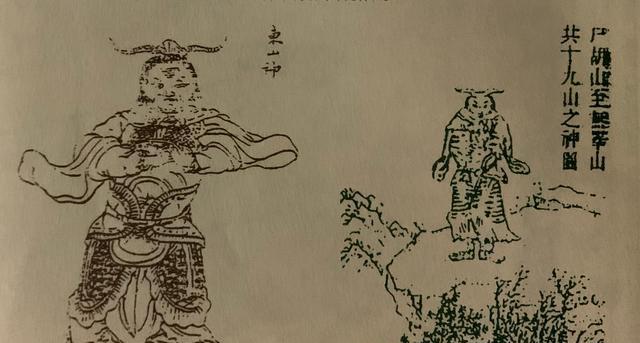 尸胡山至無皋山
共十九山之神圖
東山神